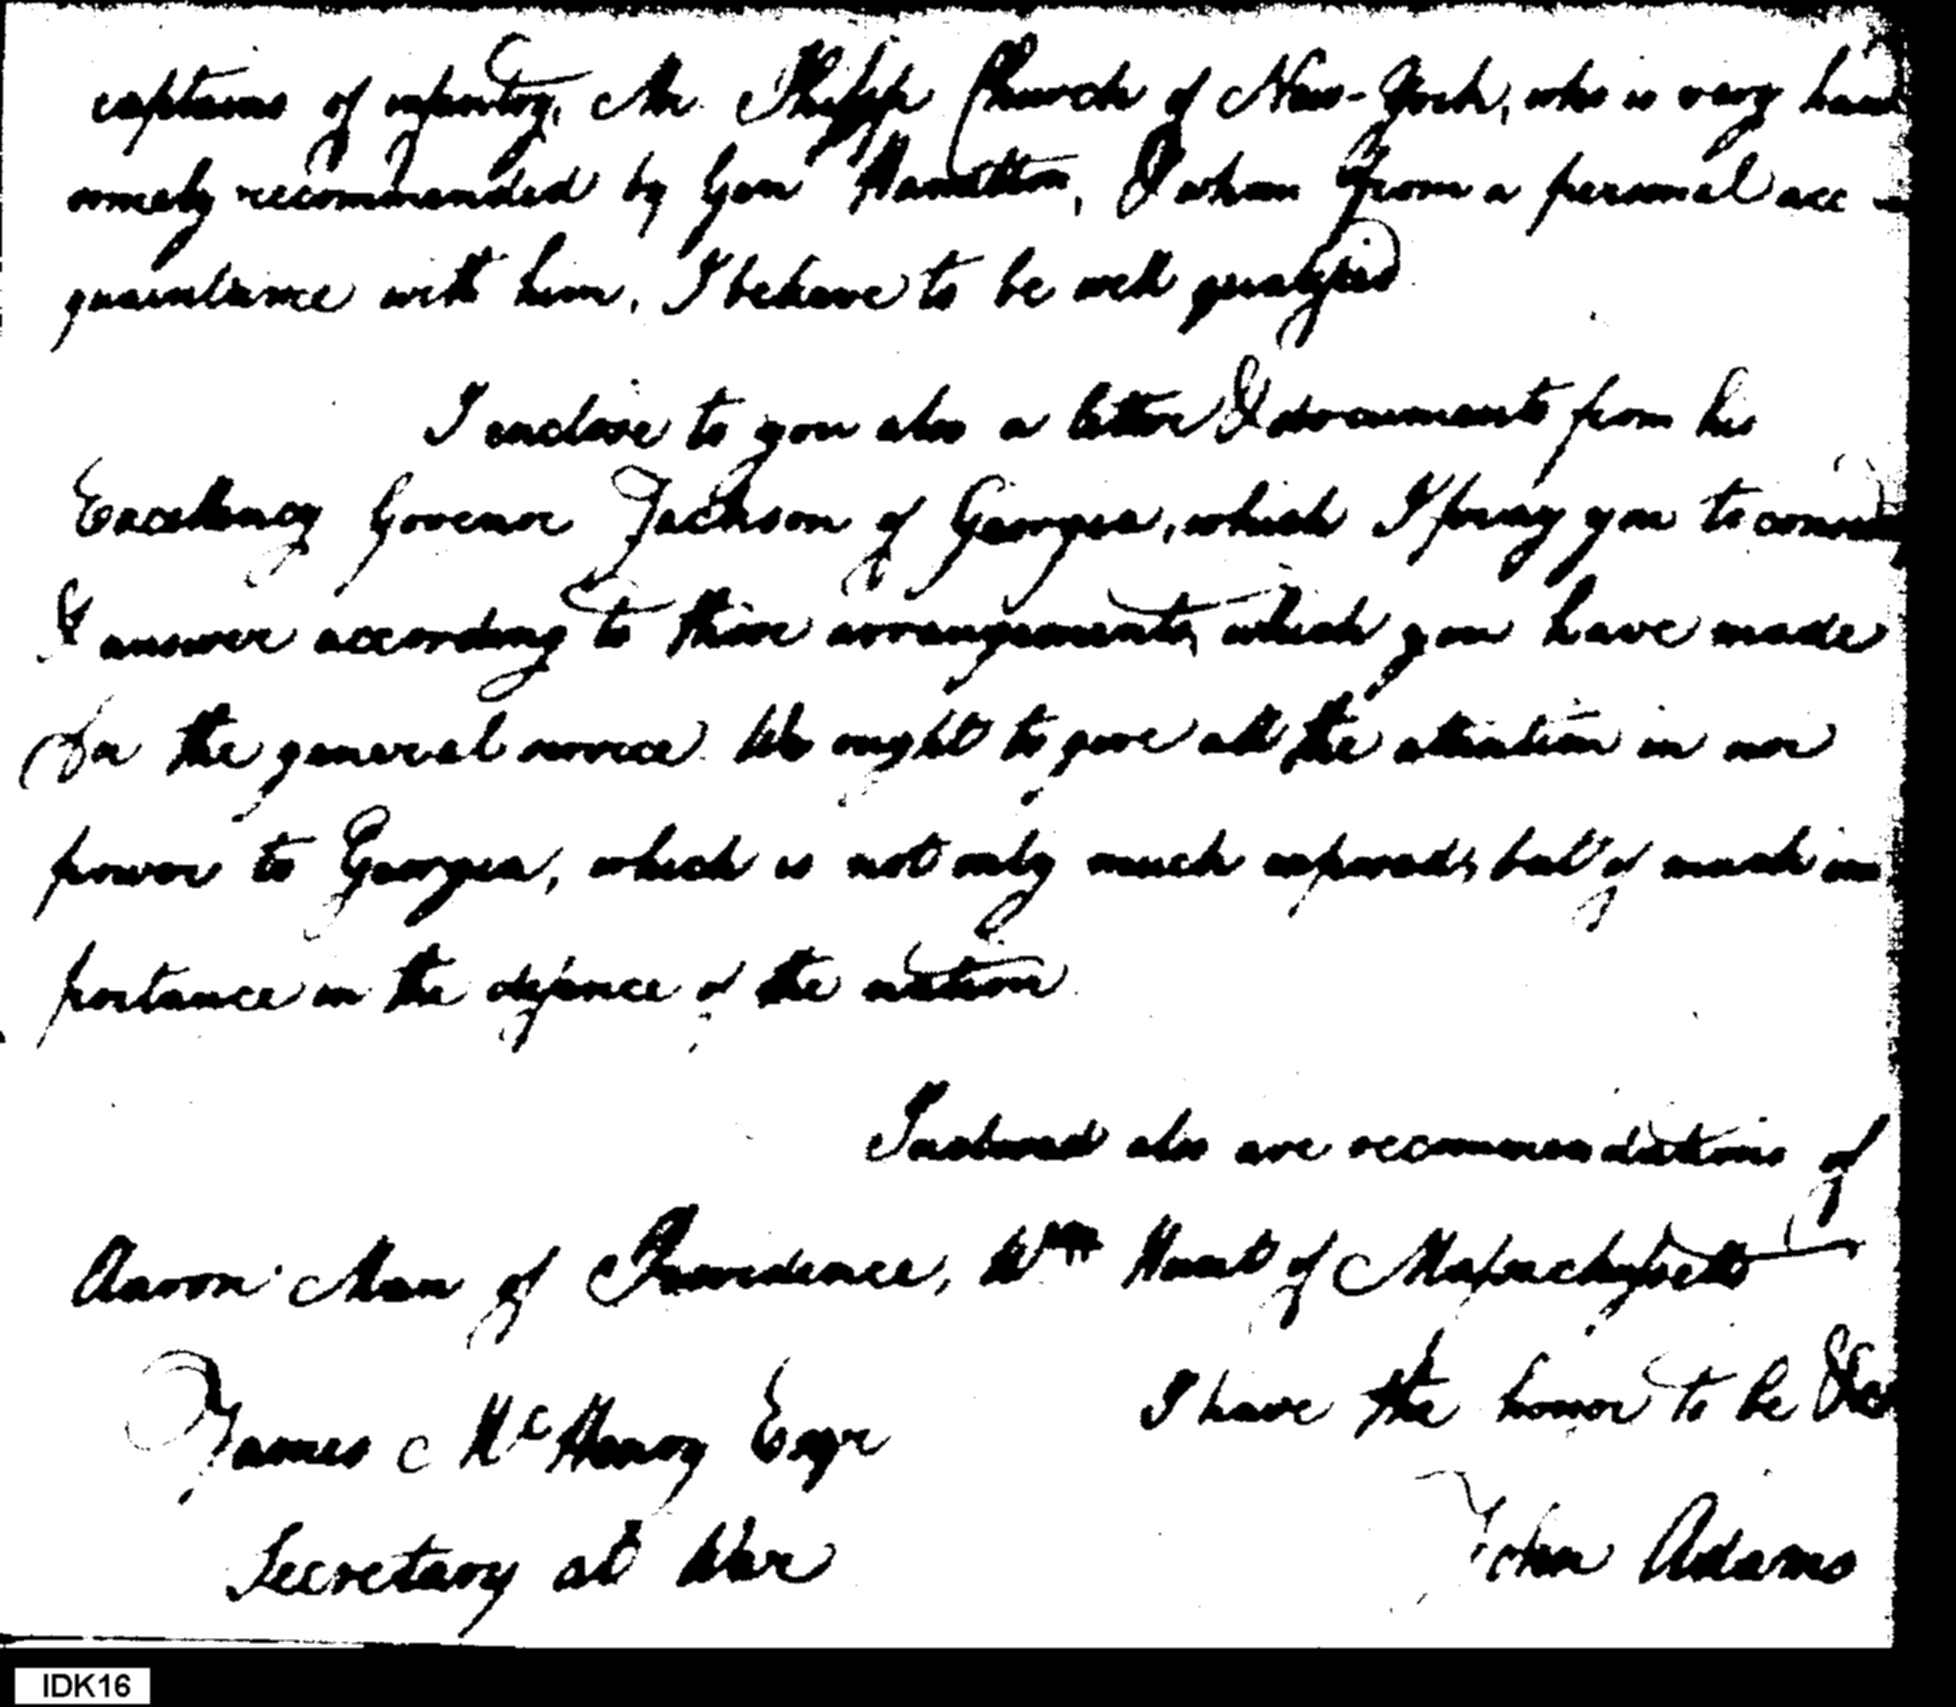 captains of infantry, Mr. Philip Church of New-York, who is very hand
somely recommended by Gen Hamilton, & whom from a personal acc
quaintance with him, I believe to be well qualified
I enclose to you also a letter & documents from his
Excellency Govenor Jackson of Georgia, which I pray you to consider
& answer according to those arrangements, which you have made
for the general service. We ought to give all the attention in our
power to Georgia, which is not only much exposed, but of much im
portance in the defence of the nation.
Inclosed also are recommendations of
Aaron Man of Providence, Wm Hunt of Massachusetts
I have the honor to be &c
James McHenry Esqr
John Adams
Secretary at War
IDK16